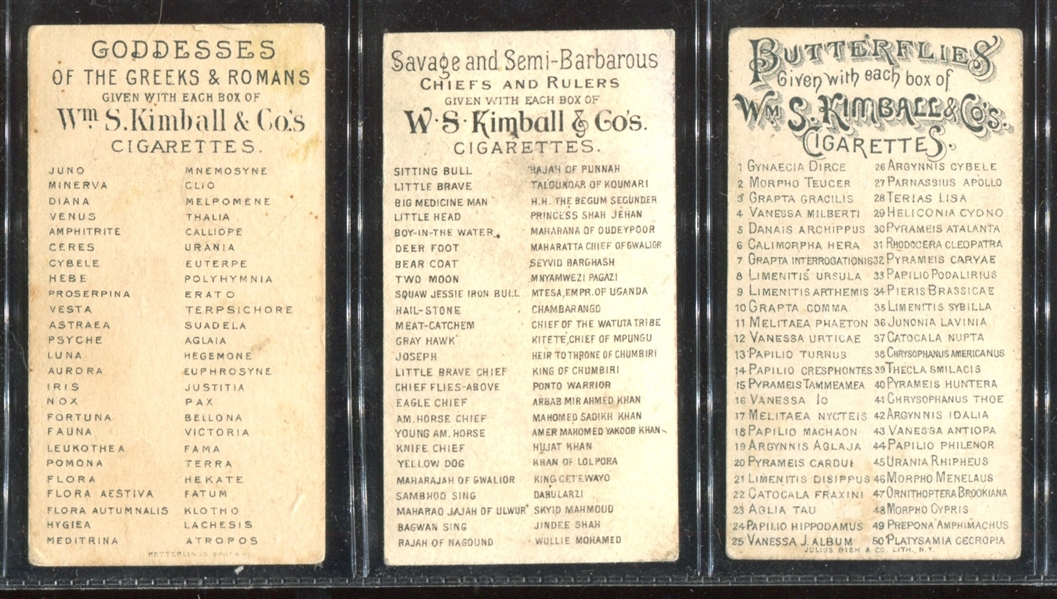 GODDESSES
OF THE GREEKS & ROMANS
GIVEN WITH EACH BOX OF
Wm S. Kimball & Co's
CIGARETTES.
JUNO
MINERVA
DIANA
VENUS
AMPHITRITE
CERES
CYBELE
HEBE
PROSERPINA
VESTA
ASTRAEA
PSYCHE
LUNA
AURORA
IRIS
NOX
FORTUNA
FAUNA
LEUKOTHEA
POMONA
FLORA
FLORA AESTIVA
FLORA AUTUMNALIS
HYGIEA
MEDITRINA
MNEMOSYNE
CLIO
MELPOMENE
THALIA
CALLIOPE
URANIA
EUTERPE
POLYHYMNIA
ERATO
TERPSICHORE
SUADELA
AGLAIA
HEGEMONE
EUPHROSYNE
JUSTITIA
PAX
BELLONA
VICTORIA
FAMA
TERRA
HEKATE
FATUM
KLOTHO
LACHESIS
ATROPOS
Savage and Semi-Barbarous
CHIEFS AND RULERS
GIVEN WITH EACH BOX OF
W. S. Kimball & Co's.
CIGARETTES.
SITTING BULL
LITTLE BRAVE
BIG MEDICINE MAN
LITTLE HEAD
BOY-IN-THE WATER
DEER FOOT
BEAR COAT
TWO MOON
SQUAW JESSIE IRON BULL
HAIL-STONE
MEAT-CATCHEM
GRAY HAWK
JOSEPH
LITTLE BRAVE CHIEF
CHIEF FLIES-ABOVE
EAGLE CHIEF
AM. HORSE CHIEF
YOUNG AM. HORSE
KNIFE CHIEF
YELLOW DOG
MAHARAJAH OF GWALIOR
SAMBHOO SING
MAHARAO JAJAH OF ULWUR
BAGWAN SING
RAJAH OF NAGOUND
RAJAH OF PUNNAH
TALOUNDAR OF KOUMARI
H.H. THE BEGUM SECUNDER
PRINCESS SHAH JEHAN
MAHARANA OF OUDEYPOOR
MAHARATTA CHIEF OF GWALIOR
SEYVID BARGHASH
MNYAMWEZI PAGAZI
MTESA, EMPR. OF UGANDA
CHAMBARANGO
CHIEF OF THE WATUTA TRIBE
KITETE, CHIEF OF MPUNGU
HEIR TO THRONE OF CHUMBIRI
KING OF CHUMBIRI
PONTO WARRIOR
ARBAB MIR AHMED KHAN
MAHOMED SADIKH KHAN
AMER MAHOMED YAKOOB KHAN
HUJAT KHAN
KHAN OF LOLPORA
KING CETEWAYO
DABULARZI
SKYID MAHMOUD
JINDEE SHAH
WULLIE MOHAMED
BUTTERFLIES
Given with each box of
WM S. KIMBALL & CO'S.
CIGARETTES.
1 GYNAECIA DIRCE
2 MORPHO TEUCER
3 GRAPTA GRACILIS
4 VANESSA MILBERTI
5 DANAIS ARCHIPPUS
6 CALIMORPHA HERA
7 GRAPTA INTERROGATIONIS
8 LIMENITIS URSULA
9 LIMENITIS ARTHEMIS
10 GRAPTA COMMA
11 MELITAEA PHAETON
12 VANESSA URTICAE
13 PAPILIO TURNUS
14 PAPILIO CRESPHONTES
15 PYRAMEIS TAMMEAMEA
16 VANESSA IO
17 MELITAEA NYCTEIS
18 PAPILIO MACHAON
19 ARGYNNIS AGLAJA
20 PYRAMEIS CARDUI
21 LIMENITIS DISIPPUS
22 CATOCALA FRAXINI
23 AGLIA TAU
24 PAPILIO HIPPODAMUS
25 VANESSA J. ALBUM
26 ARGYNNIS CYBELE
27 PARNASSIUS APOLLO
28 TERIAS LISA
29 HELICONIA CYDNO
30 PYRAMEIS ATALANTA
31 RHODOCERA CLEOPATRA
32 PYRAMEIS CARYAE
33 PAPILIO PODALIRIUS
34 PIERIS BRASSICAE
35 LIMENITIS SYBILLA
36 JUNONIA LAVINIA
37 CATOCALA NUPTA
38 CHRYSOPHANUS AMERICANUS
39 THECLA SMILACIS
40 PYRAMEIS HUNTERA
41 CHRYSOPHANUS THOE
42 ARGYNNIS IDALIA
43 VANESSA ANTIOPA
44 PAPILIO PHILENOR
45 URANIA RHIPHEUS
46 MORPHO MENELAUS
47 ORNITHOPTERA BROOKIANA
48 MORPHO CYPRIS
49 PREPONA AMPHIMACHUS
50 PLATYSAMIA CECROPIA
JULIUS BIEN & CO. LITH., N.Y.